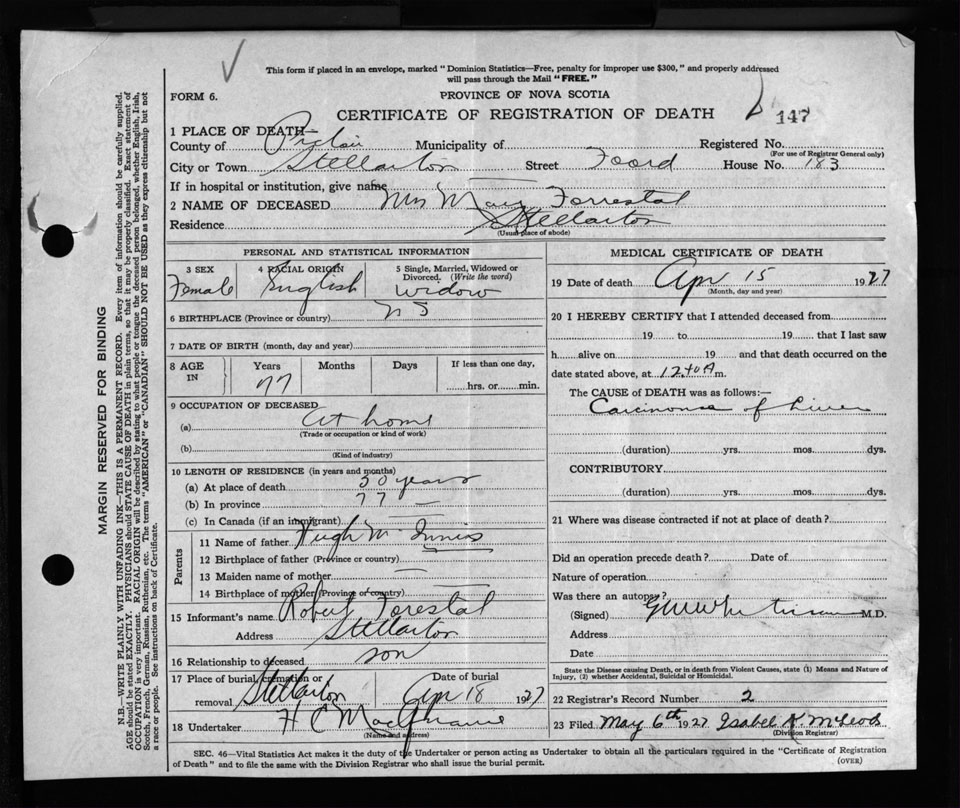 This form if placed in an envelope, marked "Dominion Statistics—Free, penalty for improper use $300," and properly addressed
will pass through the Mail "FREE."
FORM 6.
PROVINCE OF NOVA SCOTIA
CERTIFICATE OF REGISTRATION OF DEATH
147
1 PLACE OF DEATH—
County of Pictou Municipality of Registered No.
(For use of Registrar General only)
City or Town Stellarton Street Foord House No. 183
If in hospital or institution, give name
2 NAME OF DECEASED Mrs Mary Forrestal
Residence Stellarton
(Usual place of abode)
PERSONAL AND STATISTICAL INFORMATION
3 SEX 4 RACIAL ORIGIN 5 Single, Married, Widowed or
Divorced. (Write the word)
Female English Widow
6 BIRTHPLACE (Province or country) N S
7 DATE OF BIRTH (month, day and year)
8 AGE IN Years Months Days If less than one day,
77 hrs. or min.
9 OCCUPATION OF DECEASED
(a) At home
(Trade or occupation or kind of work)
(b)
(Kind of industry)
10 LENGTH OF RESIDENCE (in years and months)
(a) At place of death 50 years
(b) In province 77 —
(c) In Canada (if an immigrant)
Parents
11 Name of father Hugh Mc Innis
12 Birthplace of father (Province or country)
13 Maiden name of mother —
14 Birthplace of mother (Province or country) —
15 Informant's name Robert Forestal
Address Stellarton
16 Relationship to deceased son
17 Place of burial, cremation or Date of burial
removal Stellarton Apr 18 1927
18 Undertaker H C
(Name and address)
MEDICAL CERTIFICATE OF DEATH
19 Date of death Apr 15 1927
(Month, day and year)
20 I HEREBY CERTIFY that I attended deceased from
19 to 19 that I last saw
h alive on 19 and that death occurred on the
date stated above, at 12.40 A m.
The CAUSE OF DEATH was as follows:—
Carcinoma of Liver
(duration) yrs. mos. dys.
CONTRIBUTORY
(duration) yrs. mos. dys.
21 Where was disease contracted if not at place of death?
Did an operation precede death? Date of
Nature of operation
Was there an autopsy?
(Signed) M.D.
Address
Date
State the Disease causing Death, or in death from Violent Causes, state (1) Means and Nature of
Injury, (2) whether Accidental, Suicidal or Homicidal.
22 Registrar's Record Number 2
23 Filed May 6th 1927 Isabel K McLeod
(Division Registrar)
SEC. 46—Vital Statistics Act makes it the duty of the Undertaker or person acting as Undertaker to obtain all the particulars required in the "Certificate of Registration
of Death" and to file the same with the Division Registrar who shall issue the burial permit.
(OVER)
MARGIN RESERVED FOR BINDING
N.B.—WRITE PLAINLY WITH UNFADING INK—THIS IS A PERMANENT RECORD. Every item of information should be carefully supplied.
AGE should be stated EXACTLY. PHYSICIANS should STATE CAUSE OF DEATH in plain terms, so that it may be properly classified. Exact statement of
OCCUPATION is very important. RACIAL ORIGIN will be described by stating to what people or tongue the deceased person belonged, whether English, Irish,
Scotch, French, German, Russian, Ruthenian, etc. The terms "AMERICAN" or "CANADIAN" SHOULD NOT BE USED as they express citizenship but not
a race or people. See instructions on back of Certificate.